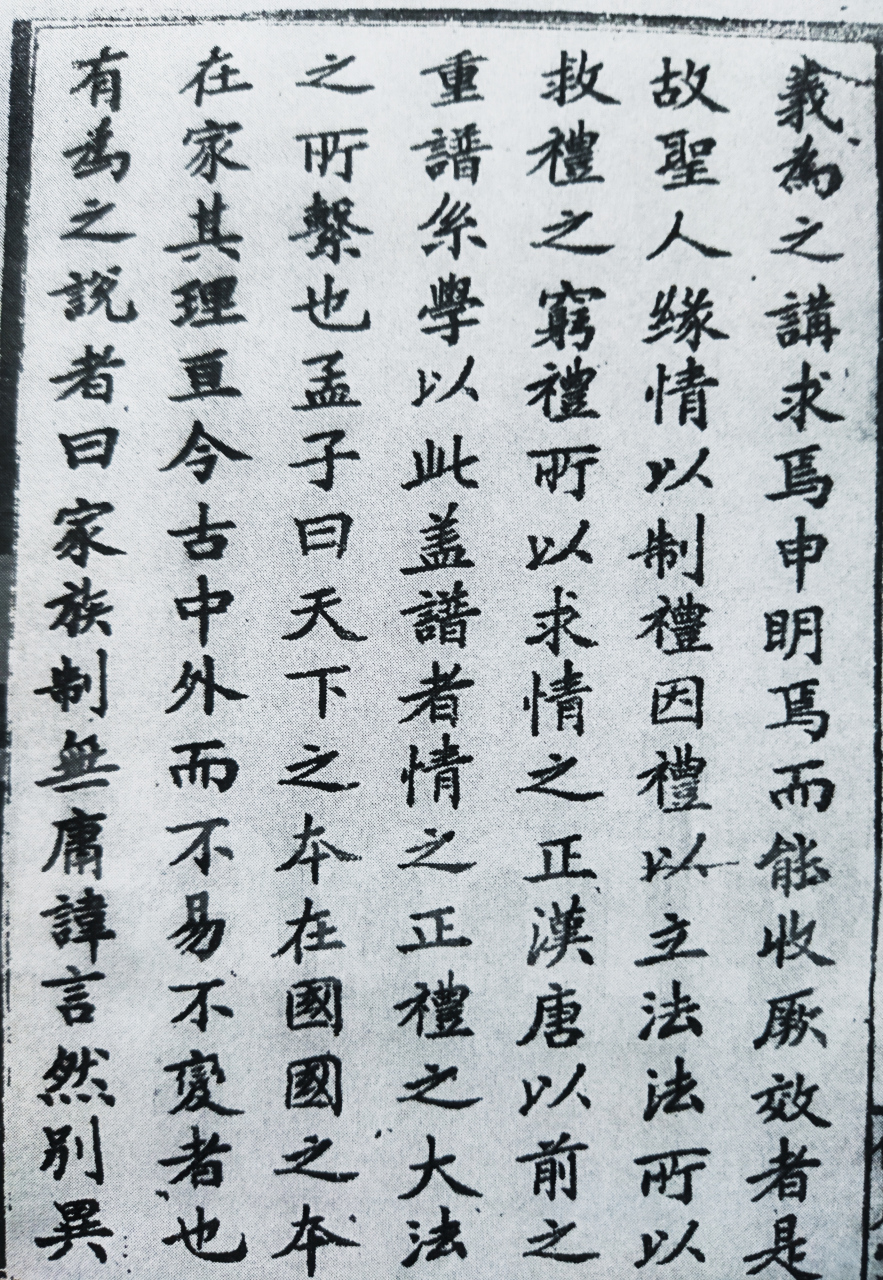 義為之講求焉申明焉而能收厥效者是
故聖人緣情以制禮因禮以立法法所以
救禮之窮禮所以求情之正漢唐以前之
重譜系學以此盖譜者情之正禮之大法
之所繫也孟子曰天下之本在國國之本
在家其理亘今古中外而不易不變者也
有為之說者曰家族制無庸諱言然別異